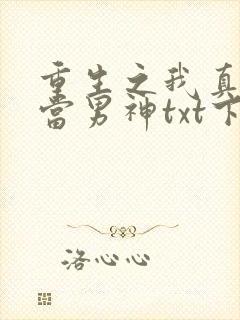 重生之我真
当男神txt下
洛心心